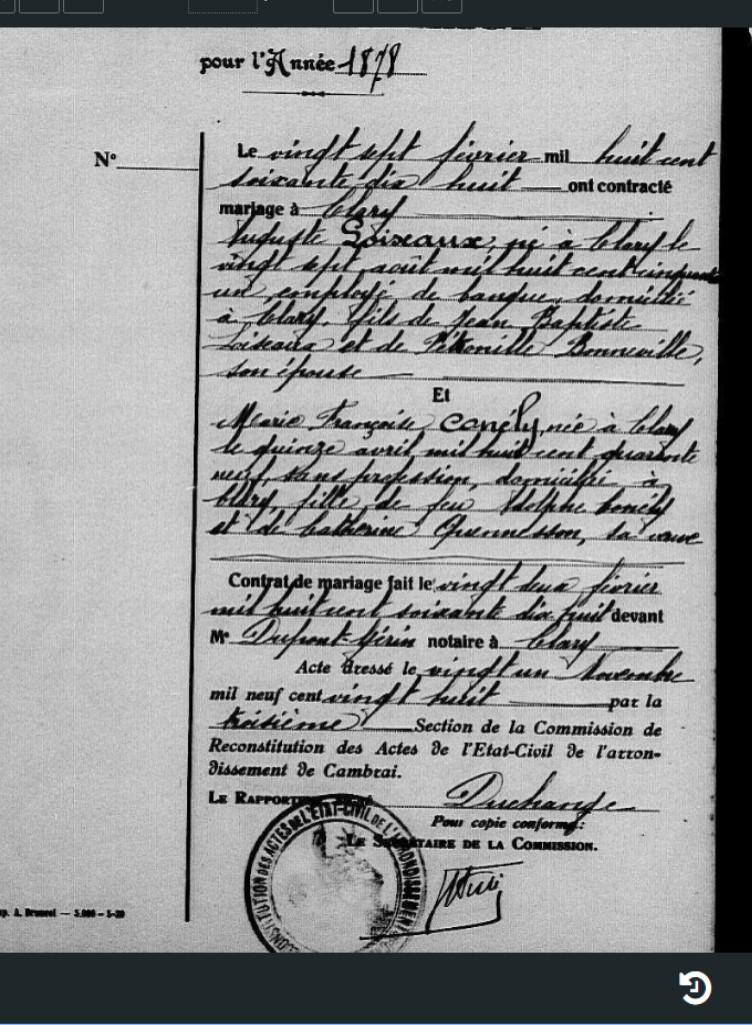 pour l'Année 1878
N°
Le vingt sept février mil huit cent
soixante dix huit ont contracté
mariage à Clary
Auguste Loiseaux, né à Clary le
vingt sept août mil huit cent cinquante
un, employé de banque, domicilié
à Clary, fils de Jean Baptiste
Loiseaux et de Pétronille Bonneville,
son épouse
Et
Marie Françoise Conély, née à Clary
le quinze avril mil huit cent quarante
neuf, sans profession, domiciliée à
Clary, fille de feu Adolphe Conély
et de Catherine Quennesson, sa veuve
Contrat de mariage fait le vingt deux février
mil huit cent soixante dix huit devant
Me Dupont-Gérin notaire à Clary
Acte dressé le vingt un Novembre
mil neuf cent vingt huit par la
troisième Section de la Commission de
Reconstitution des Actes de l'Etat-Civil de l'arron-
dissement de Cambrai.
LE RAPPORTEUR
Duchange
Pour copie conforme:
LE SECRÉTAIRE DE LA COMMISSION.
RECONSTITUTION DES ACTES DE L'ÉTAT-CIVIL DE L'ARRONDISSEMENT